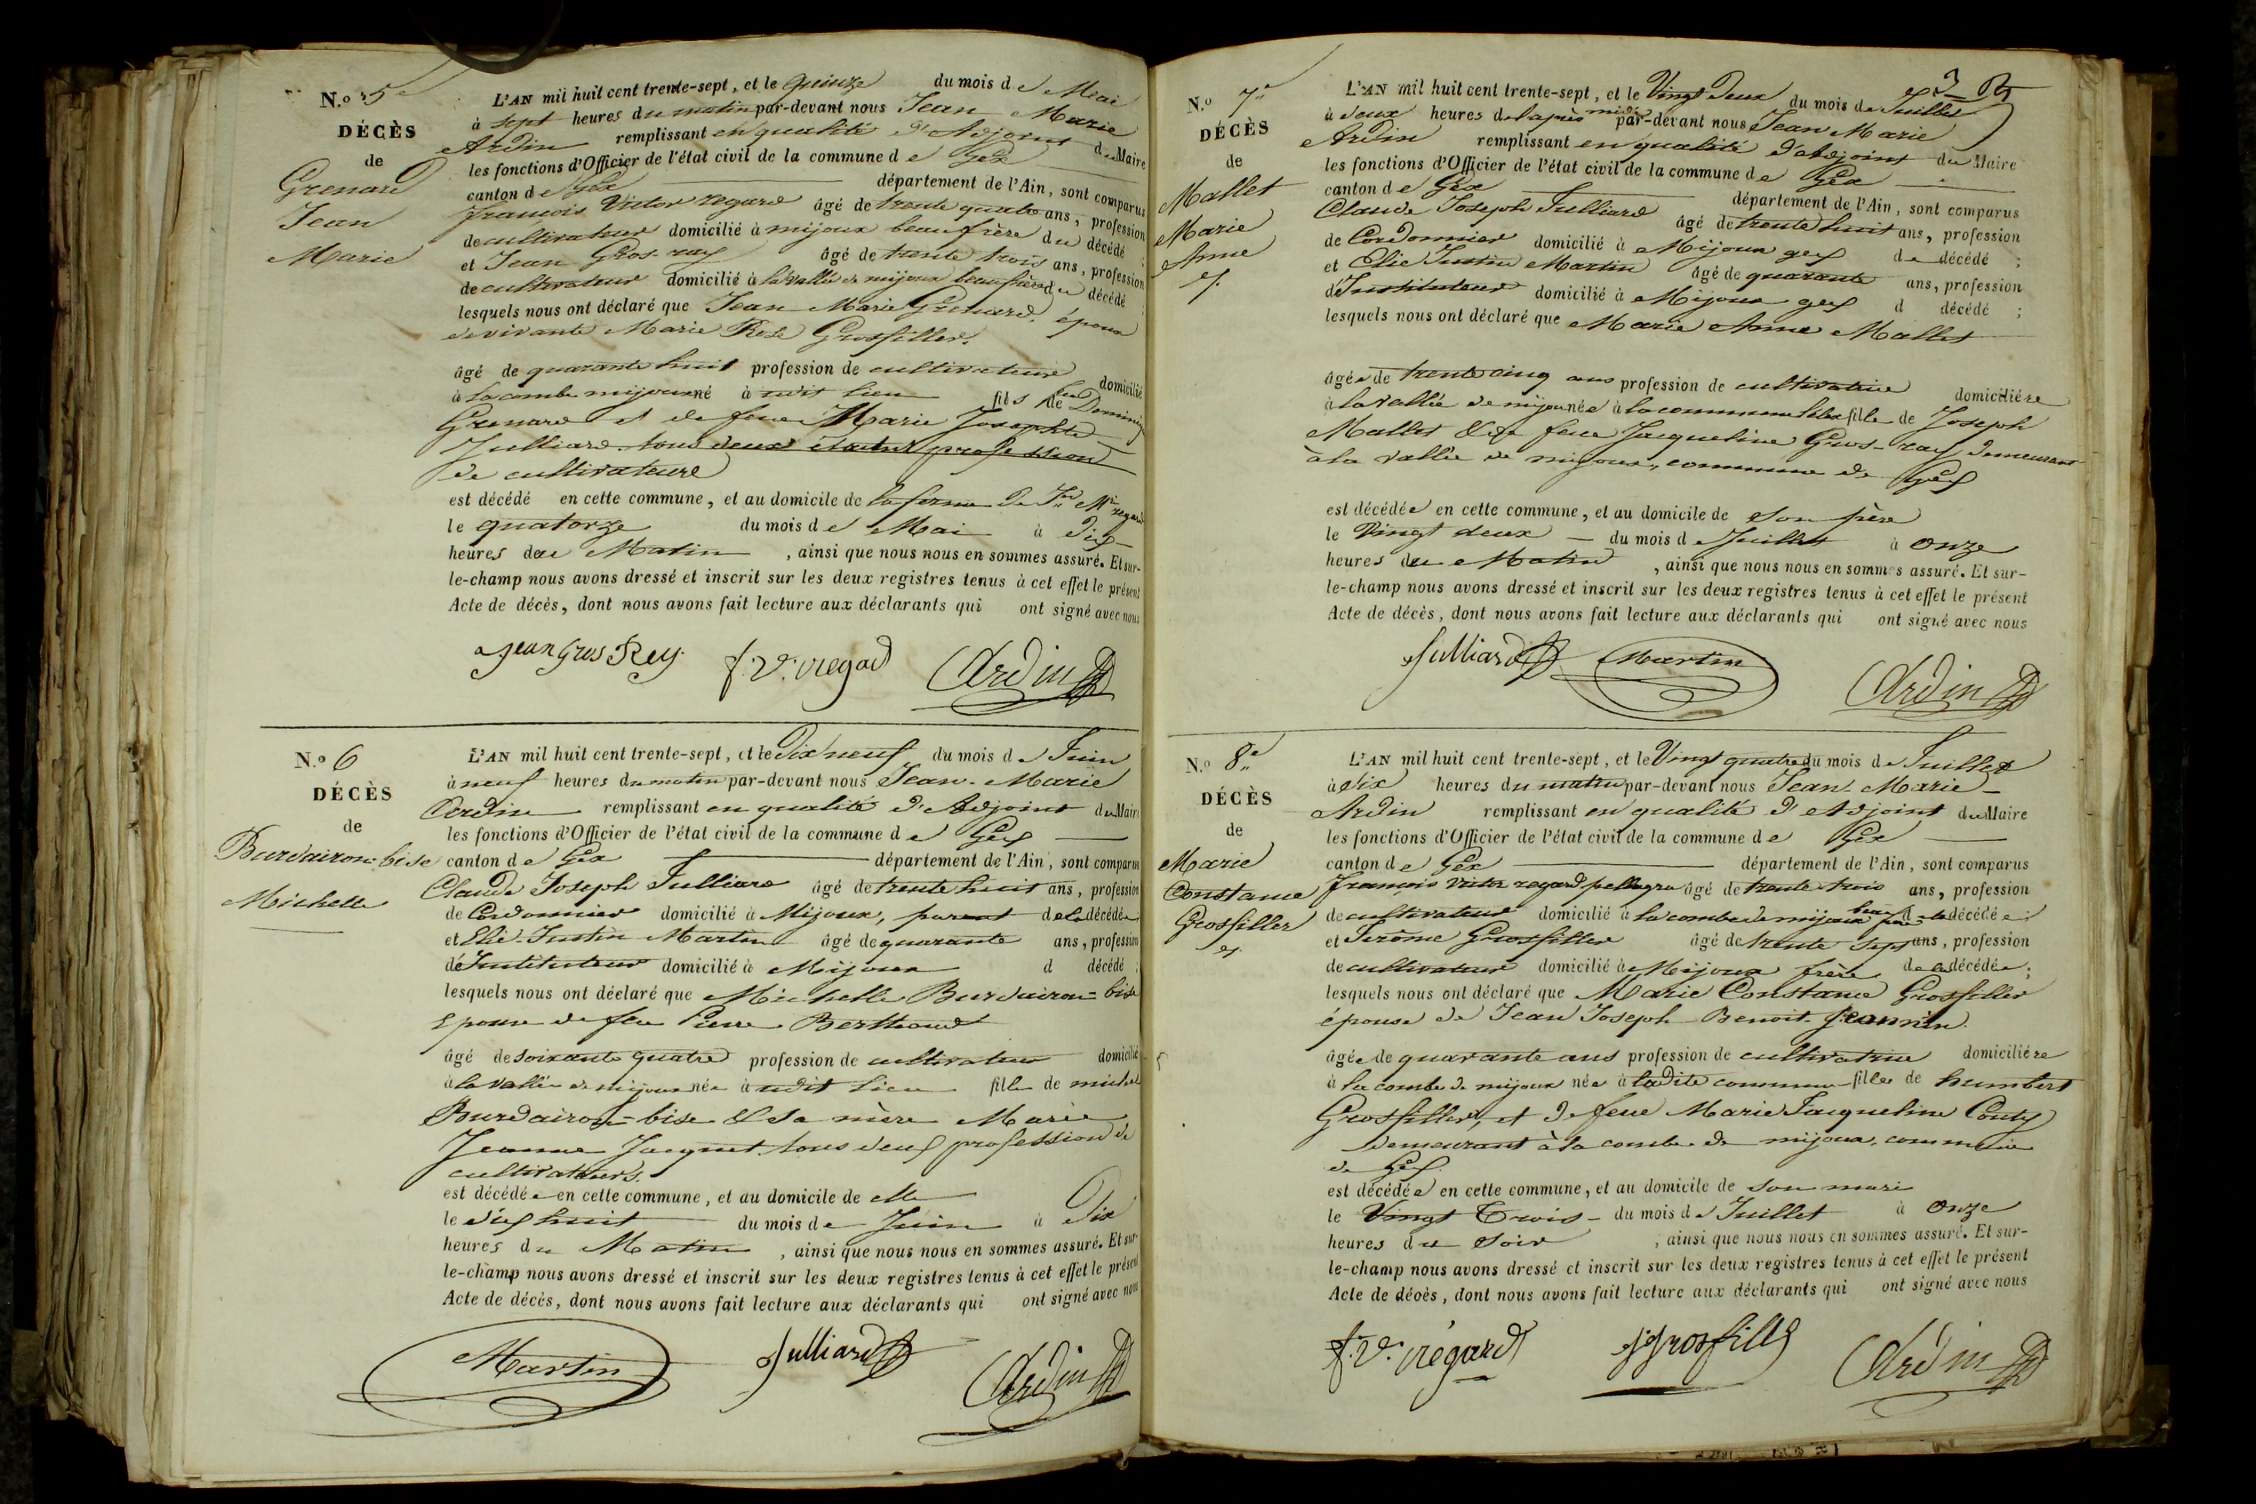 N.o 5e
DÉCÈS
de
Grenard
Jean
Marie
L'AN mil huit cent trente-sept, et le quinze du mois de Mai
à sept heures du matin par-devant nous Jean Marie
Ardin remplissant en qualité d'Adjoint du Maire
les fonctions d'Officier de l'état civil de la commune de Gex
canton de Gex département de l'Ain, sont comparus
francois Victor regard âgé de trente quatre ans, profession
de cultivateur domicilié à mijoux beau frère du décédé ;
et Jean Gros-ray âgé de trente trois ans, profession
de cultivateur domicilié à la Vallée de mijoux beaufrère du décédé ;
lesquels nous ont déclaré que Jean Marie Grenard. époux
de vivante Marie Rose Grosfiller.
âgé de quarante huit profession de cultivateur domicilié
à la combe mijoux né à dit lieu fils de feu Dominiq
Grenard et de feue Marie Josephte
Julliard. tous deux étant profession
de cultivateure
est décédé en cette commune, et au domicile de la ferme de Fr. Mie regard
le quatorze du mois de Mai à dix
heures du Matin, ainsi que nous nous en sommes assuré. Et sur-
le-champ nous avons dressé et inscrit sur les deux registres tenus à cet effet le présent
Acte de décès, dont nous avons fait lecture aux déclarants qui ont signé avec nous
Jean Gros Rey. f. V. regad Ardin
N.o 6
DÉCÈS
de
Burdairon-bise
Michelle
L'AN mil huit cent trente-sept, et le Dix neuf du mois de Juin
à neuf heures du matin par-devant nous Jean-Marie
Ardin remplissant en qualité d'Adjoint du Maire
les fonctions d'Officier de l'état civil de la commune de Gex
canton de Gex département de l'Ain, sont comparus
Claude Joseph Julliard âgé de trente huit ans, profession
de Cordonnier domicilié à Mijoux, parent de la décédée
et Elie-Justin Martin âgé de quarante ans, profession
d'Instituteur domicilié à Mijoux d décédé ;
lesquels nous ont déclaré que Michelle Burdairon-bise
Epouse de feu Pierre Berthaud
âgé de soixante quatre profession de cultivateur domicilié
à la vallée de mijoux née à dit lieu fille de michel
Burdairon-bise & sa mère Marie
Jeanne Jacquet. tous deux profession de
cultivateurs.
est décédée en cette commune, et au domicile de elle
le dix huit du mois de Juin à Dix
heures du Matin, ainsi que nous nous en sommes assuré. Et sur-
le-champ nous avons dressé et inscrit sur les deux registres tenus à cet effet le présent
Acte de décès, dont nous avons fait lecture aux déclarants qui ont signé avec nous
Martin Julliard Ardin
N.o 7e
DÉCÈS
de
Mallet
Marie
Anne
L'AN mil huit cent trente-sept, et le Vingt Deux du mois de Juillet
à deux heures de l'après midi par-devant nous Jean Marie
Ardin remplissant en qualité d'Adjoint du Maire
les fonctions d'Officier de l'état civil de la commune de Gex
canton de Gex département de l'Ain, sont comparus
Claude Joseph Julliard âgé de trente huit ans, profession
de Cordonnier domicilié à Mijoux gex de décédé ;
et Elie Justin Martin âgé de quarante ans, profession
d'Instituteur domicilié à Mijoux gex d décédé ;
lesquels nous ont déclaré que Marie Anne Mallet
âgée de trente cinq ans profession de cultivatrice domiciliée
à la vallée de mijoux née à la commune fille de Joseph
Mallet & de feue Jacqueline Gros-ray demeurant
à la vallée de mijoux, commune de Gex
est décédée en cette commune, et au domicile de son père
le Vingt deux du mois de Juillet à onze
heures du Matin, ainsi que nous nous en sommes assuré. Et sur-
le-champ nous avons dressé et inscrit sur les deux registres tenus à cet effet le présent
Acte de décès, dont nous avons fait lecture aux déclarants qui ont signé avec nous
Julliard Martin Ardin
N.o 8e
DÉCÈS
de
Marie
Constance
Grosfiller
L'AN mil huit cent trente-sept, et le Vingt quatre du mois de Juillet
à dix heures du matin par-devant nous Jean-Marie
Ardin remplissant en qualité d'Adjoint du Maire
les fonctions d'Officier de l'état civil de la commune de Gex
canton de Gex département de l'Ain, sont comparus
françois Victor regard pellagru âgé de trente trois ans, profession
de cultivateur domicilié à la combe de mijoux beau frère de la décédée ;
et Jerôme Grosfiller âgé de trente sept ans, profession
de cultivateur domicilié à Mijoux frère de la décédée ;
lesquels nous ont déclaré que Marie Constance Grosfiller
épouse de Jean Joseph Benoit Jeannin.
âgée de quarante ans profession de cultivatrice domiciliée
à la combe de mijoux née à ladite commune fille de humbert
Grosfiller, et de feue Marie Jacqueline Conty
demeurant à la combe de mijoux, commune
de Gex.
est décédée en cette commune, et au domicile de son mari
le Vingt Trois du mois de Juillet à onze
heures du soir, ainsi que nous nous en sommes assuré. Et sur-
le-champ nous avons dressé et inscrit sur les deux registres tenus à cet effet le présent
Acte de décès, dont nous avons fait lecture aux déclarants qui ont signé avec nous
f. V. régard Grosfille Ardin